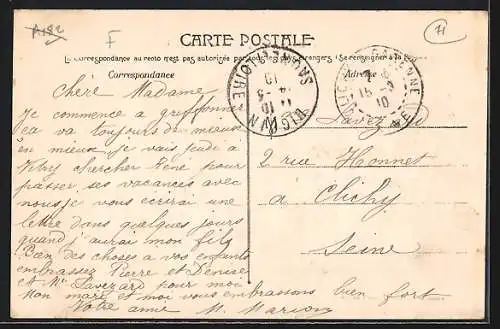 A182
F
71
CARTE POSTALE
La Correspondance au recto n'est pas autorisée par tous les pays étrangers (Se renseigner à la Poste)
Correspondance
Adresse
SAONE-ET-LOIRE
14-5
10
GARENNE
Chère Madame
Je commence a griffonner
ça va toujours de mieux
en mieux je vais jeudi a
chercher René pour
passer ses vacances avec
nous je vous ecrirai une
lettre dans quelques jours
quand j'aurai mon fils
Bien des choses a vos enfants
embrassez Pierre et Denise
et Mr Lavezard pour moi
Mon mari et moi vous embrassons bien fort
Votre amie M. Marion
2 rue Honnet
a Clichy
Seine